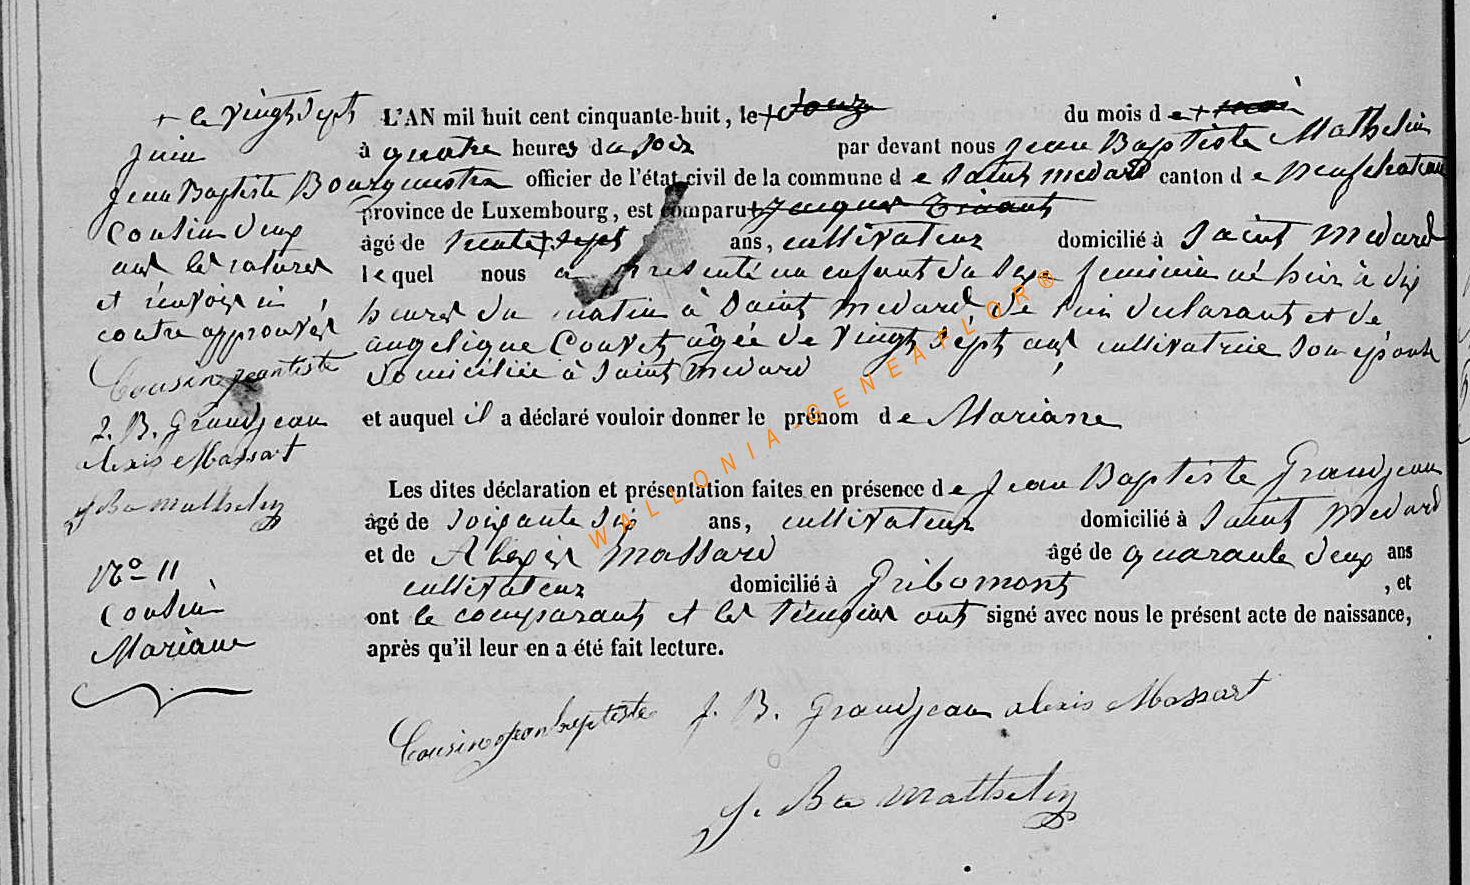 + le vingt sept
juin
Jean Baptiste
Cousin deux
aus les ratures
et renvois ci
contre approuvés
Cousin jean batiste
J. B. Grandjean
alexis Massart
J Bte Mathelin
N° 11
Cousin
Mariane
L'AN mil huit cent cinquante-huit, le + douze du mois de + mai
à quatre heures du soir par devant nous Jean Baptiste Mathelin
Bourgmestre officier de l'état civil de la commune de Saint medard canton de neufchateau
province de Luxembourg, est comparu + Jacques
âgé de trente sept ans, cultivateur domicilié à Saint medard
lequel nous a présenté un enfant du sexe feminin né hier à dix
heures du matin à Saint medard, de lui declarant et de
angelique Couvet âgée de vingt sept ans, cultivatrice son epouse
domiciliée à Saint medard
et auquel il a déclaré vouloir donner le prénom de Mariane
Les dites déclaration et présentation faites en présence de Jean Baptiste Grandjean
âgé de soixante six ans, cultivateur domicilié à Saint medard
et de Alexis massard âgé de quarante deux ans
cultivateur domicilié à Gribomont , et
ont le comparant et les témoins ont signé avec nous le présent acte de naissance,
après qu'il leur en a été fait lecture.
Cousin jean baptiste J. B. Grandjean alexis Massart
J. Bte Mathelin
WALLONIA.GENEAFLOR®